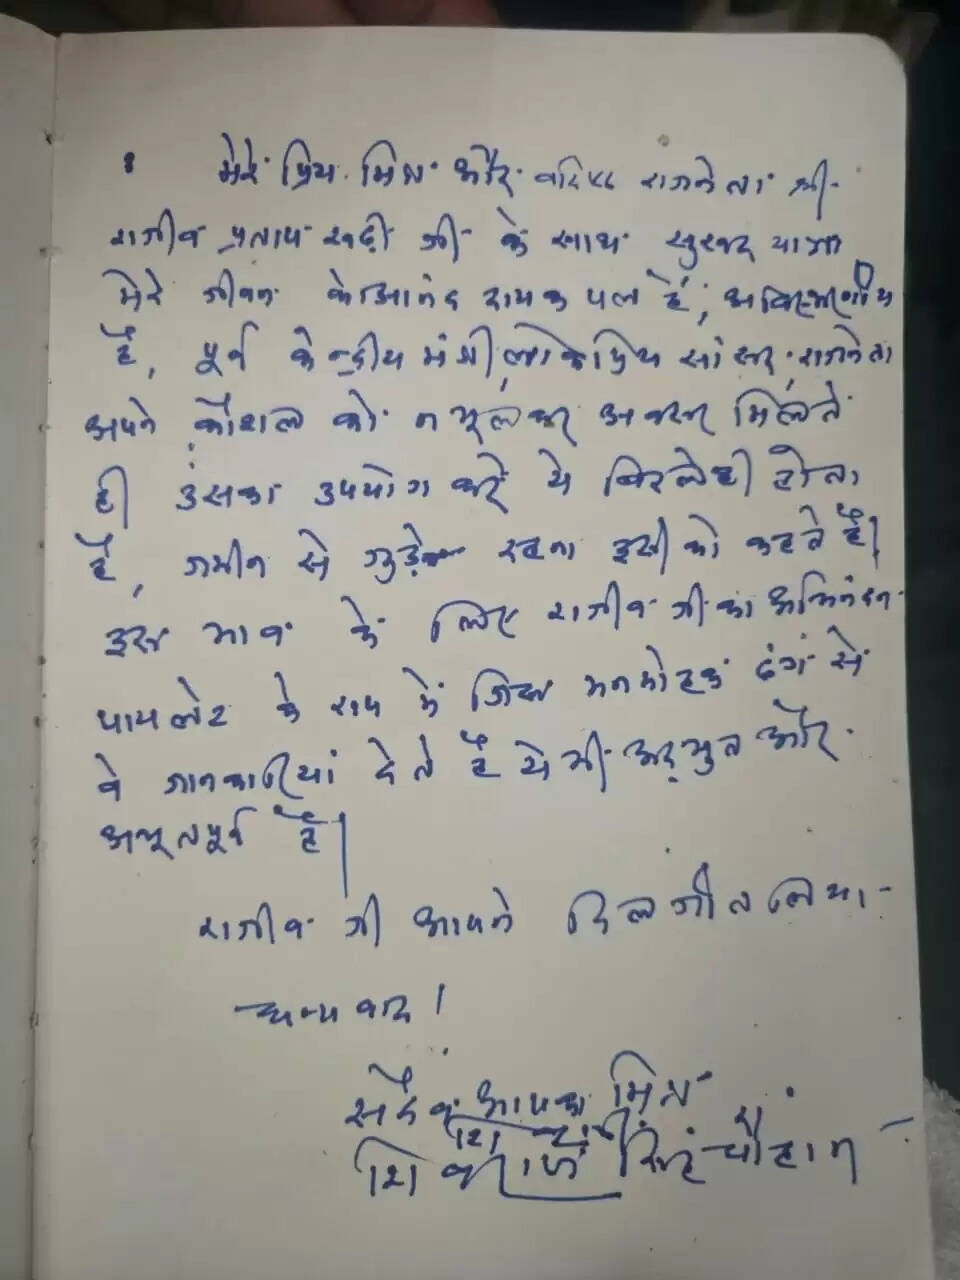 मेरे प्रिय मित्र और वरिष्ठ राजनेता श्री
राजीव प्रताप रूडी जी के साथ सुखद यात्रा
मेरे जीवन के आनंद दायक पल हैं, अविस्मरणीय
है, पूर्व केन्द्रीय मंत्री, लोकप्रिय सांसद, राजनेता
अपने कौशल को न भूलकर अवसर मिलते
ही उसका उपयोग करे ये विरले ही होता
है, जमीन से जुड़े रहना इसी को कहते है।
इस भाव के लिए राजीव जी का अभिनंदन
पायलेट के रूप में जिस मनमोहक ढंग से
वे जानकारियां देते है ये भी अद्भुत और
अभूतपूर्व है।
राजीव जी आपने दिल जीत लिया
धन्यवाद।
सदैव आपका मित्र
शिवराज सिंह चौहान